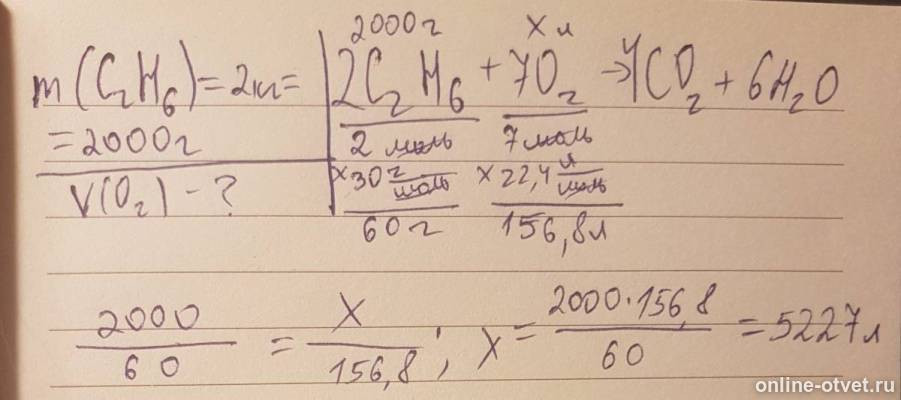 m(C₂H₆)=2кг=
=2000г
V(O₂) - ?
2000г x л
2C₂H₆ + 7O₂ → 4CO₂ + 6H₂O
2 моль 7 моль
x 30 г/моль x 22,4 л/моль
60 г 156,8л
2000/60 = x/156,8 ; x = 2000·156,8/60 = 5227 л
online-otvet.ru